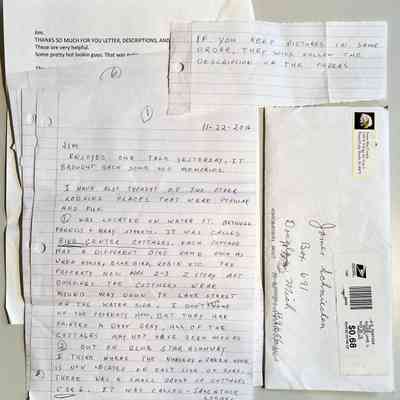 Jim,
THANKS SO MUCH FOR YOU LETTER, DESCRIPTIONS, AND
These are very helpful.
Some pretty hot lookin guys. That was
IF YOU KEEP PICTURES IN SAME
ORDER, THEY WILL FOLLOW THE
DESCRIPTION ON THE PAPERS
6
1
11-22-2016
JIM,
ENJOYED OUR TALK YESTERDAY, IT
BROUGHT BACK SOME OLD MEMORIES.
I HAVE ALSO THOUGHT OF TWO OTHER
LODGING PLACES THAT WERE POPULAR
AND FUN.
① WAS LOCATED ON WATER ST. BETWEEN
FRANCIS & MARY STREETS. IT WAS CALLED
BIRD CENTER COTTAGES. EACH COTTAGE
HAD A DIFFERENT BIRD NAME SUCH AS
WREN HOUSE, BLUE BIRD, ROBIN ETC. THE
PROPERTY NOW HAS 2-3, 2 STORY APT
BUILDINGS. THE COTTAGES WERE
MOVED WAY DOWN TO LAKE STREET
ON THE WATER SIDE. I DON'T
OF THE PRESENTS NOW, BUT THEY ARE
PAINTED A DARK GRAY, ALL OF THE
COTTAGES MAY NOT HAVE BEEN MOVED
② OUT ON BLUE STAR HIGHWAY
I THINK WHERE THE
IS NOW LOCATED ON EAST SIDE OF ROAD.
THERE WAS A SMALL GROUP OF COTTAGES
IT WAS CALLED
James Schmiechen
Box 691
Douglas Mich
$0.68